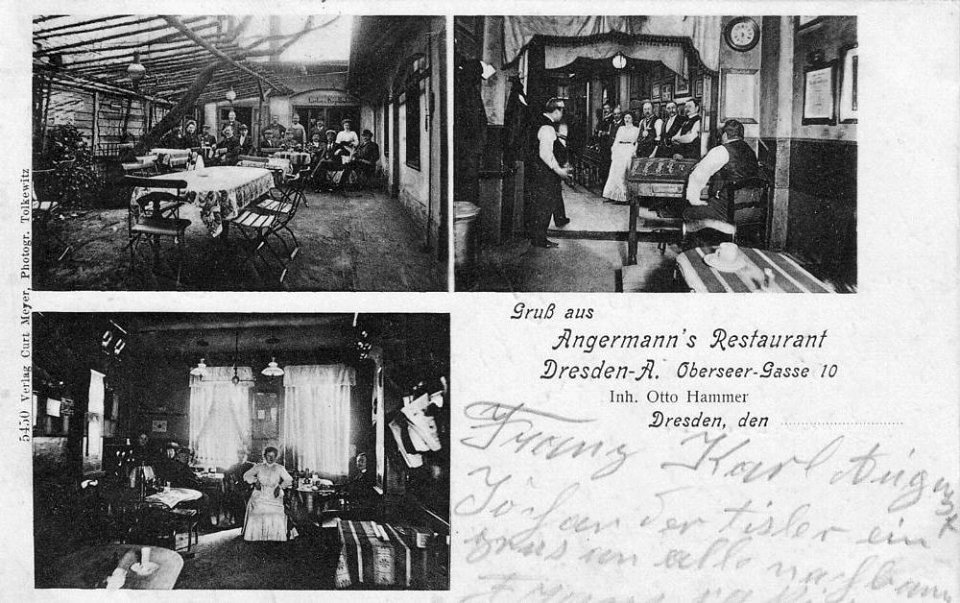 5450 Verlag Curt Meyer, Photogr. Tolkewitz
Gruß aus
Angermann's Restaurant
Dresden-A. Oberseer-Gasse 10
Inh. Otto Hammer
Dresden, den
Franz Karl August
Johan der tisler ein
grus un alle nachbarn